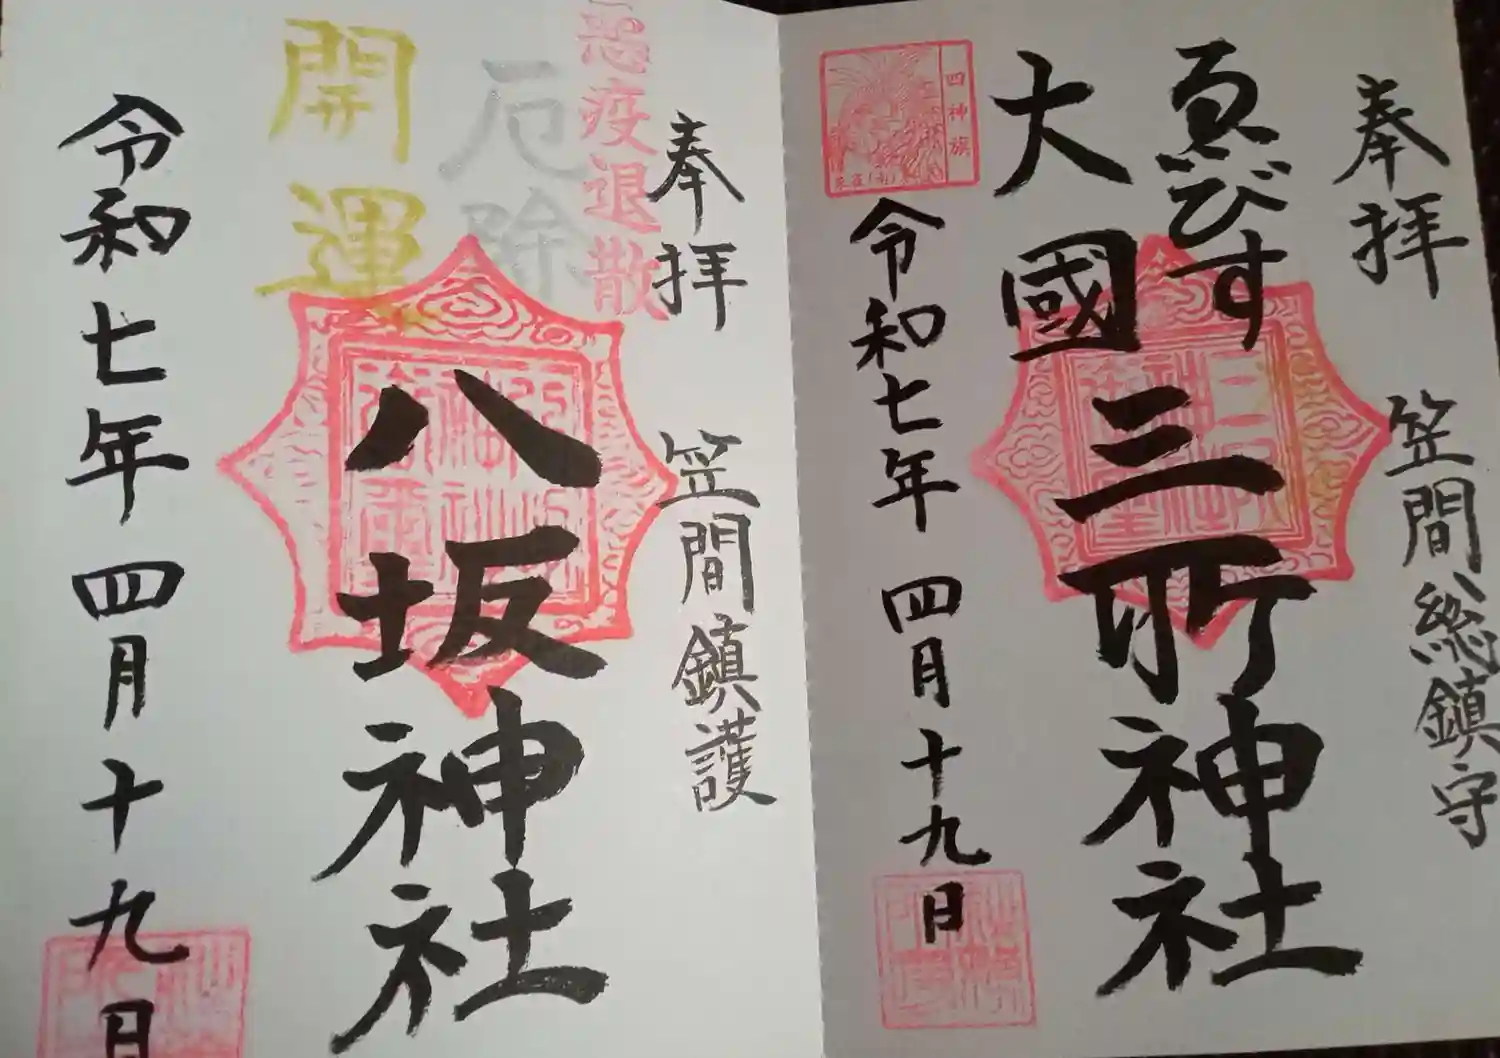 奉拝
笠間総鎮守
ゑびす
大國
三所神社
四神旗
令和七年四月十九日
奉拝
笠間鎮護
悪疫退散
厄除
開運
八坂神社
令和七年四月十九日